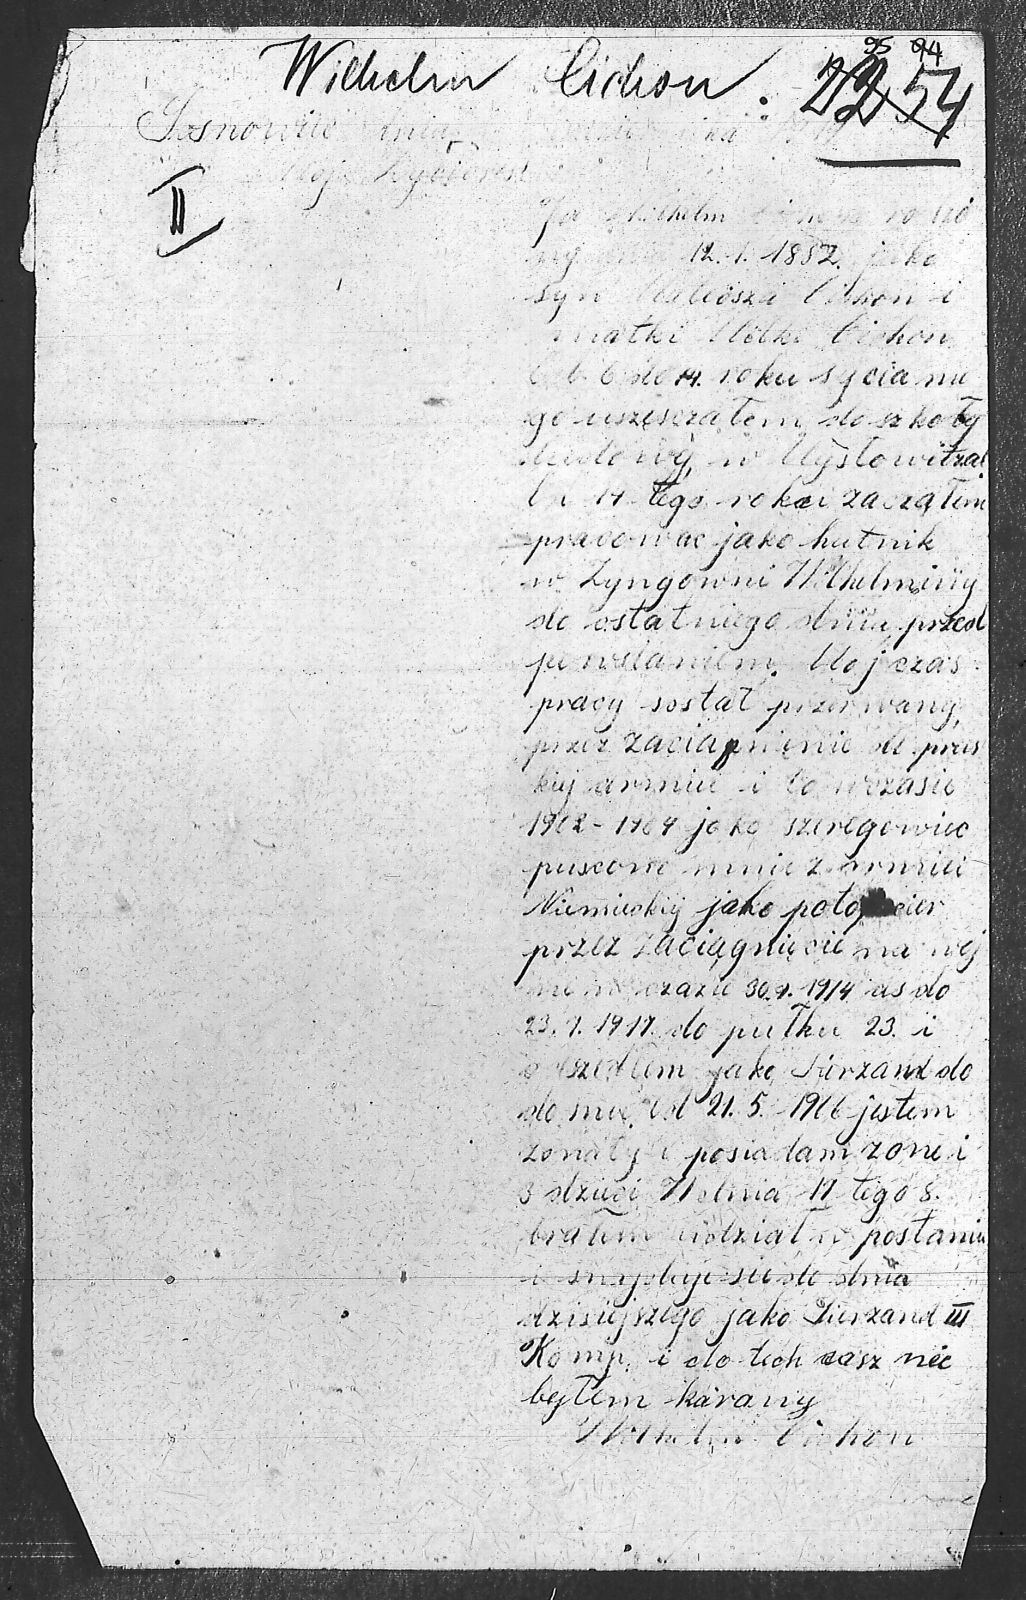 95 94
Wilhelm Cichon. 2254
Sosnowiec dnia
II
Moj Życiorys
Ja Wilhelm
12.1.1882. jako
syn Cichon i
matki Cichon
do 14. roku życia me
go uszęsczałem do szkoły
ludowy w Mysłowitza
14 tego roku zaczałem
pracowac jako hutnik
w Zyngowni Wilhelminy
do ostatniego dniu przed
powstaniem. Moj czas
pracy sostał przerwany
przez zaciągnięnie do prus
kiej armiie i to w czasie
1902-1904 jako szeregowiec
puscono mnie z armiei
Niemieckiej jako
przez zaciągnięcie na woj
ne w czazie 30.9.1914 as do
23.1.1917 do pułku 23. i
odszedłem jako Sierzand do
domu. Od 21.5. 1906 jestem
zonaty i posiadam zone i
3 dzieci Wdnia 17 tego 8.
brałem udział w postaniu
i snajduje sie do dnia
dzisiejszego jako Sierzand III
Komp. i do tech casz nie
bełem karany
Wilhelm Cichon